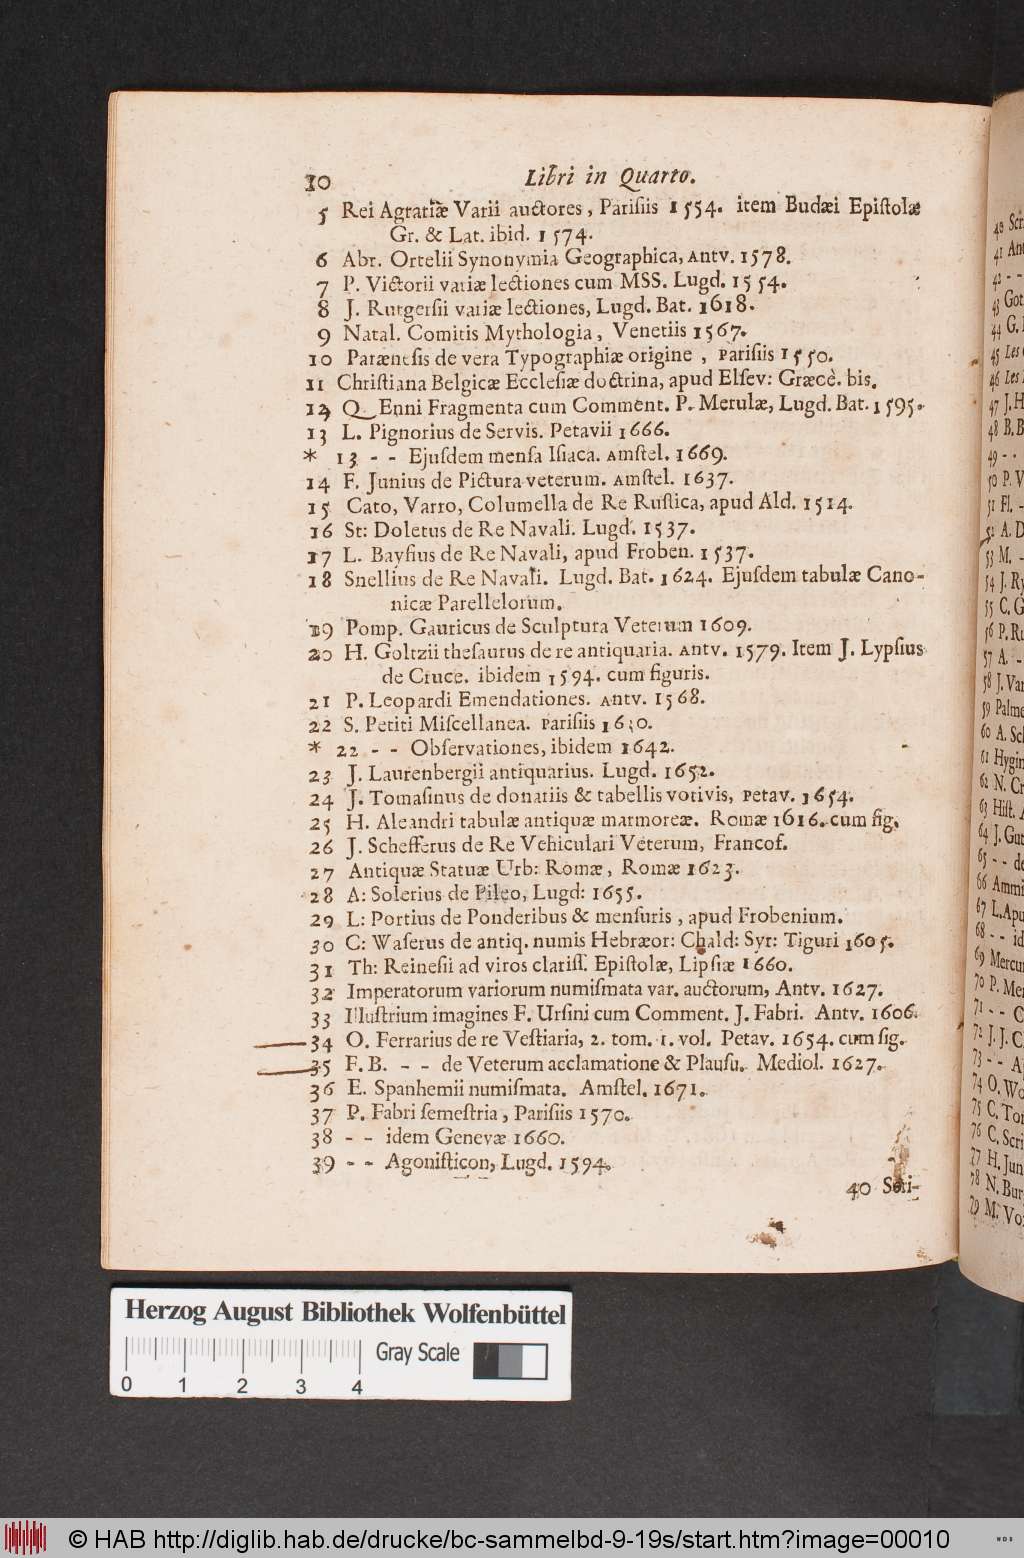 10 Libri in Quarto.
5 Rei Agrariæ Varii auctores, Parisiis 1554. item Budæi Epistolæ
Gr. & Lat. ibid. 1574.
6 Abr. Ortelii Synonymia Geographica, Antv. 1578.
7 P. Victorii variæ lectiones cum MSS. Lugd. 1554.
8 J. Rutgersii variæ lectiones, Lugd. Bat. 1618.
9 Natal. Comitis Mythologia, Venetiis 1567.
10 Parænesis de vera Typographiæ origine, Parisiis 1550.
11 Christiana Belgicæ Ecclesiæ doctrina, apud Elsev: Græcè. bis.
12 Q. Enni Fragmenta cum Comment. P. Merulæ, Lugd. Bat. 1595.
13 L. Pignorius de Servis. Petavii 1666.
* 13 - - Ejusdem mensa Isiaca. Amstel. 1669.
14 F. Junius de Pictura veterum. Amstel. 1637.
15 Cato, Varro, Columella de Re Rustica, apud Ald. 1514.
16 St: Doletus de Re Navali. Lugd. 1537.
17 L. Baysius de Re Navali, apud Froben. 1537.
18 Snellius de Re Navali. Lugd. Bat. 1624. Ejusdem tabulæ Cano-
nicæ Parellelorum.
19 Pomp. Gauricus de Sculptura Veterum 1609.
20 H. Goltzii thesaurus de re antiquaria. Antv. 1579. Item J. Lypsius
de Cruce. ibidem 1594. cum figuris.
21 P. Leopardi Emendationes. Antv. 1568.
22 S. Petiti Miscellanea. Parisiis 1630.
* 22 - - Observationes, ibidem 1642.
23 J. Laurenbergii antiquarius. Lugd. 1652.
24 J. Tomasinus de donariis & tabellis votivis, Petav. 1654.
25 H. Aleandri tabulæ antiquæ marmoreæ. Romæ 1616. cum fig.
26 J. Schefferus de Re Vehiculari Veterum, Francof.
27 Antiquæ Statuæ Urb: Romæ, Romæ 1623.
28 A: Solerius de Pileo, Lugd: 1655.
29 L: Portius de Ponderibus & mensuris, apud Frobenium.
30 C: Waserus de antiq. numis Hebræor: Chald: Syr: Tiguri 1605.
31 Th: Reinesii ad viros clariss. Epistolæ, Lipsiæ 1660.
32 Imperatorum variorum numismata var. auctorum, Antv. 1627.
33 Illustrium imagines F. Ursini cum Comment. J. Fabri. Antv. 1606.
34 O. Ferrarius de re Vestiaria, 2. tom. 1. vol. Petav. 1654. cum fig.
35 F. B. - - de Veterum acclamatione & Plausu. Mediol. 1627.
36 E. Spanhemii numismata. Amstel. 1671.
37 P. Fabri semestria, Parisiis 1570.
38 - - idem Genevæ 1660.
39 - - Agonisticon, Lugd. 1594.
40 Scri-
40 Scr
41 Ant
42 - -
43 Got
44 G.
45 Les
46 Les
47 J. H
48 B. B
49 - -
50 P. V
51 Fl. -
52 A. D
53 M. -
54 J. Ry
55 C. G
56 P. Ru
57 A. -
58 J. Var
59 Palme
60 A. Sch
61 Hygin
62 N. Cr
63 Hist. A
64 J. Gut
65 - - de
66 Ammi
67 L. Apu
68 - - id
69 Mercur
70 P. Mer
71 - - C
72 J. J. C
73 - - A
74 O. Wo
75 C. Tor
76 C. Scri
77 H. Jun
78 N. Bur
79 M. Vo
Herzog August Bibliothek Wolfenbüttel
Gray Scale
0 1 2 3 4
© HAB http://diglib.hab.de/drucke/bc-sammelbd-9-19s/start.htm?image=00010